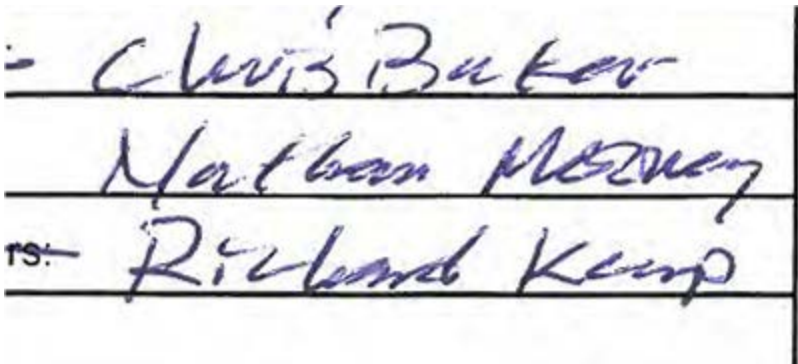 - Chris Baker
Nathan
rs: - Richard Kemp